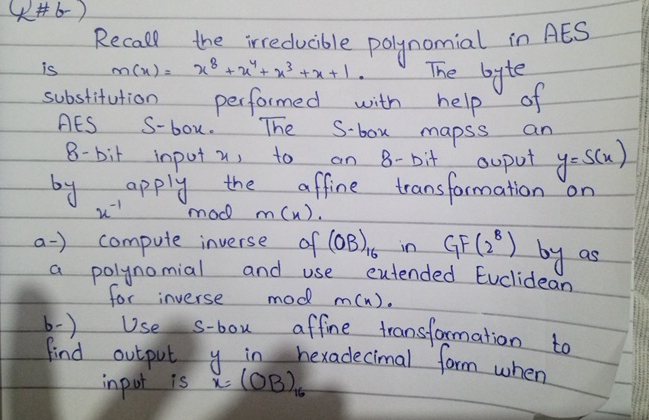 Q#6-)
Recall the irreducible polynomial in AES
is m(x) = x⁸ + x⁴ + x³ + x + 1. The byte
substitution performed with help of
AES S-box. The S-box mapss an
8-bit input x, to an 8-bit ouput y=S(x)
by apply the affine transformation on
x⁻¹ mod m(x).
a-) compute inverse of (OB)₁₆ in GF(2⁸) by as
a polynomial and use extended Euclidean
for inverse mod m(x).
b-) Use S-box affine transformation to
find output y in hexadecimal form when
input is x = (OB)₁₆